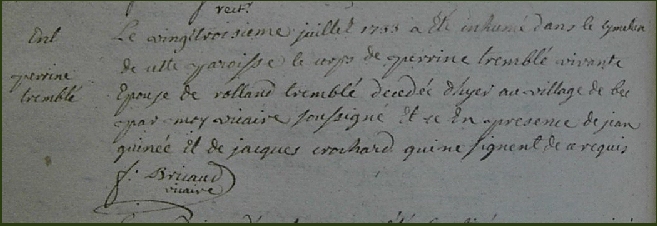 rect.
Ent
perrine
tremblé
Le vingttroisieme juillet 1733 a été inhumé dans le cymetiere
de cette paroisse le corps de perrine tremblé vivante
Epouse de rolland tremblé decedée d'hyer au village de bee
par moy vicaire soussigné Et ce En presence de jean
guinée et de jacques crochard qui ne signent de ce requis
f. Briand
vicaire